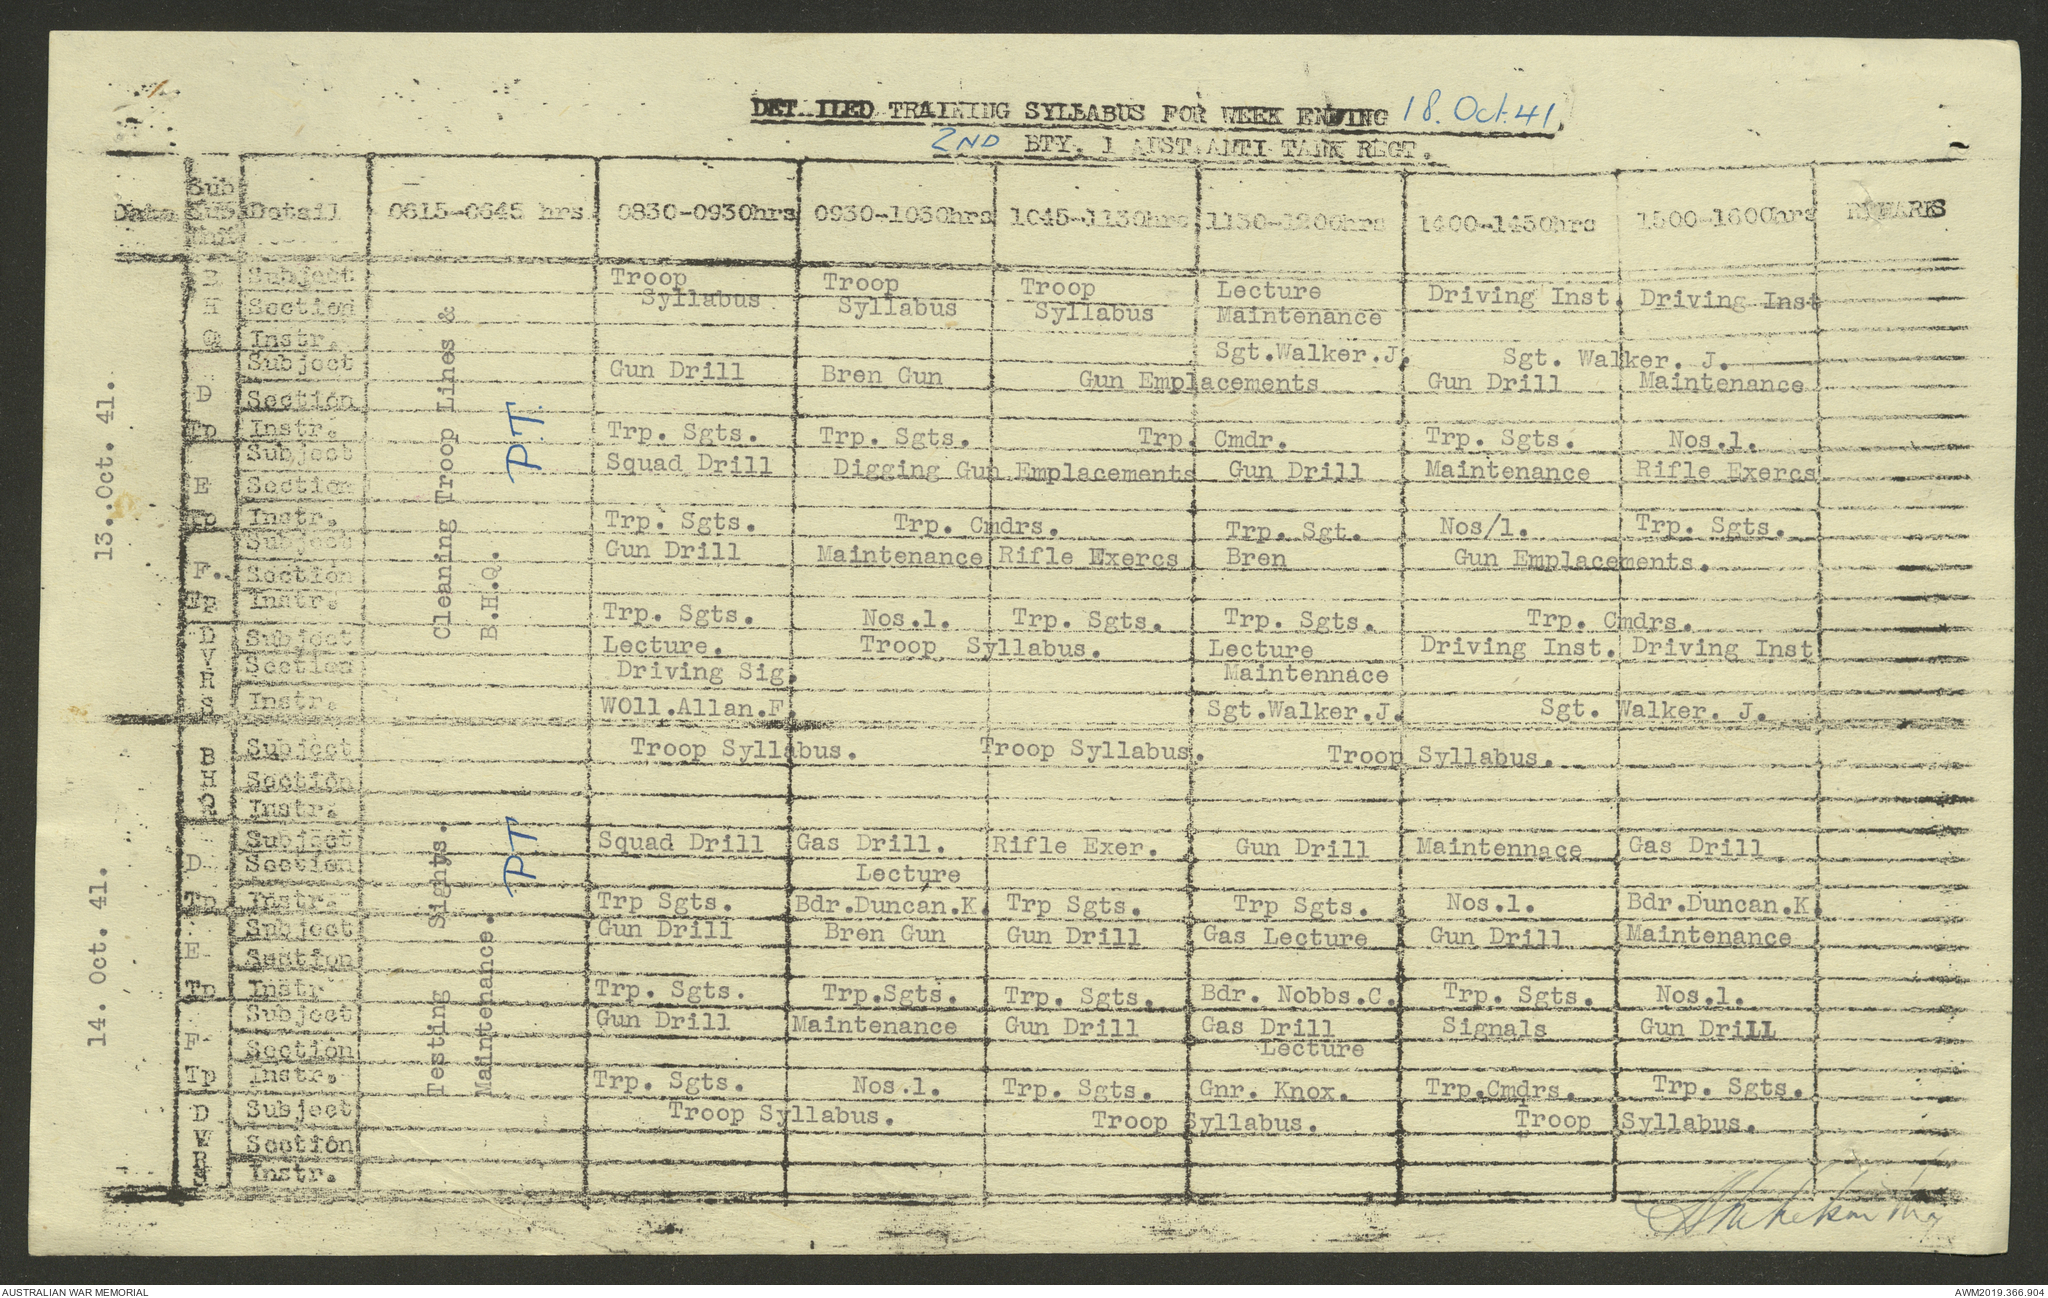 DET ILED TRAINING SYLLABUS FOR WEEK ENDING 18. Oct. 41.
2ND BTY. 1 AUST. ANTI TANK REGT.
Date Sub Sub Unit Detail 0615-0645 hrs. 0830-0930hrs 0930-1030hrs 1045-1130hrs 1130-1200hrs 1400-1450hrs 1500-1600hrs REMARKS
13..Oct. 41.
Cleaning Troop Lines &
B.H.Q.
P.T.
B H Q
Subject Troop Syllabus Troop Syllabus Troop Syllabus Lecture Maintenance Driving Inst. Driving Inst
Section
Instr. Sgt.Walker.J. Sgt. Walker. J.
D Tp
Subject Gun Drill Bren Gun Gun Emplacements Gun Drill Maintenance
Section
Instr. Trp. Sgts. Trp. Sgts. Trp. Cmdr. Trp. Sgts. Nos.1.
E Tp
Subject Squad Drill Digging Gun Emplacements Gun Drill Maintenance Rifle Exercs
Section
Instr. Trp. Sgts. Trp. Cmdrs. Trp. Sgt. Nos/1. Trp. Sgts.
F. Tp
Subject Gun Drill Maintenance Rifle Exercs Bren Gun Emplacements.
Section
Instr. Trp. Sgts. Nos.1. Trp. Sgts. Trp. Sgts. Trp. Cmdrs.
D V R S
Subject Lecture. Troop Syllabus. Lecture Driving Inst. Driving Inst
Section Driving Sig. Maintennace
Instr. WOll.Allan.F. Sgt.Walker.J. Sgt. Walker. J.
14. Oct. 41.
Testing Sights.
Maintenance.
PT
B H Q
Subject Troop Syllabus. Troop Syllabus. Troop Syllabus.
Section
Instr.
D Tp
Subject Squad Drill Gas Drill. Rifle Exer. Gun Drill Maintennace Gas Drill
Section Lecture
Instr. Trp Sgts. Bdr.Duncan.K. Trp Sgts. Trp Sgts. Nos.1. Bdr.Duncan.K.
E Tp
Subject Gun Drill Bren Gun Gun Drill Gas Lecture Gun Drill Maintenance
Section
Instr Trp. Sgts. Trp.Sgts. Trp. Sgts. Bdr. Nobbs.C. Trp. Sgts. Nos.1.
F Tp
Subject Gun Drill Maintenance Gun Drill Gas Drill Signals Gun Drill
Section Lecture
Instr. Trp. Sgts. Nos.1. Trp. Sgts. Gnr. Knox. Trp.Cmdrs. Trp. Sgts.
D V R S
Subject Troop Syllabus. Troop Syllabus. Troop Syllabus.
Section
Instr.
AUSTRALIAN WAR MEMORIAL
AWM2019.366.904